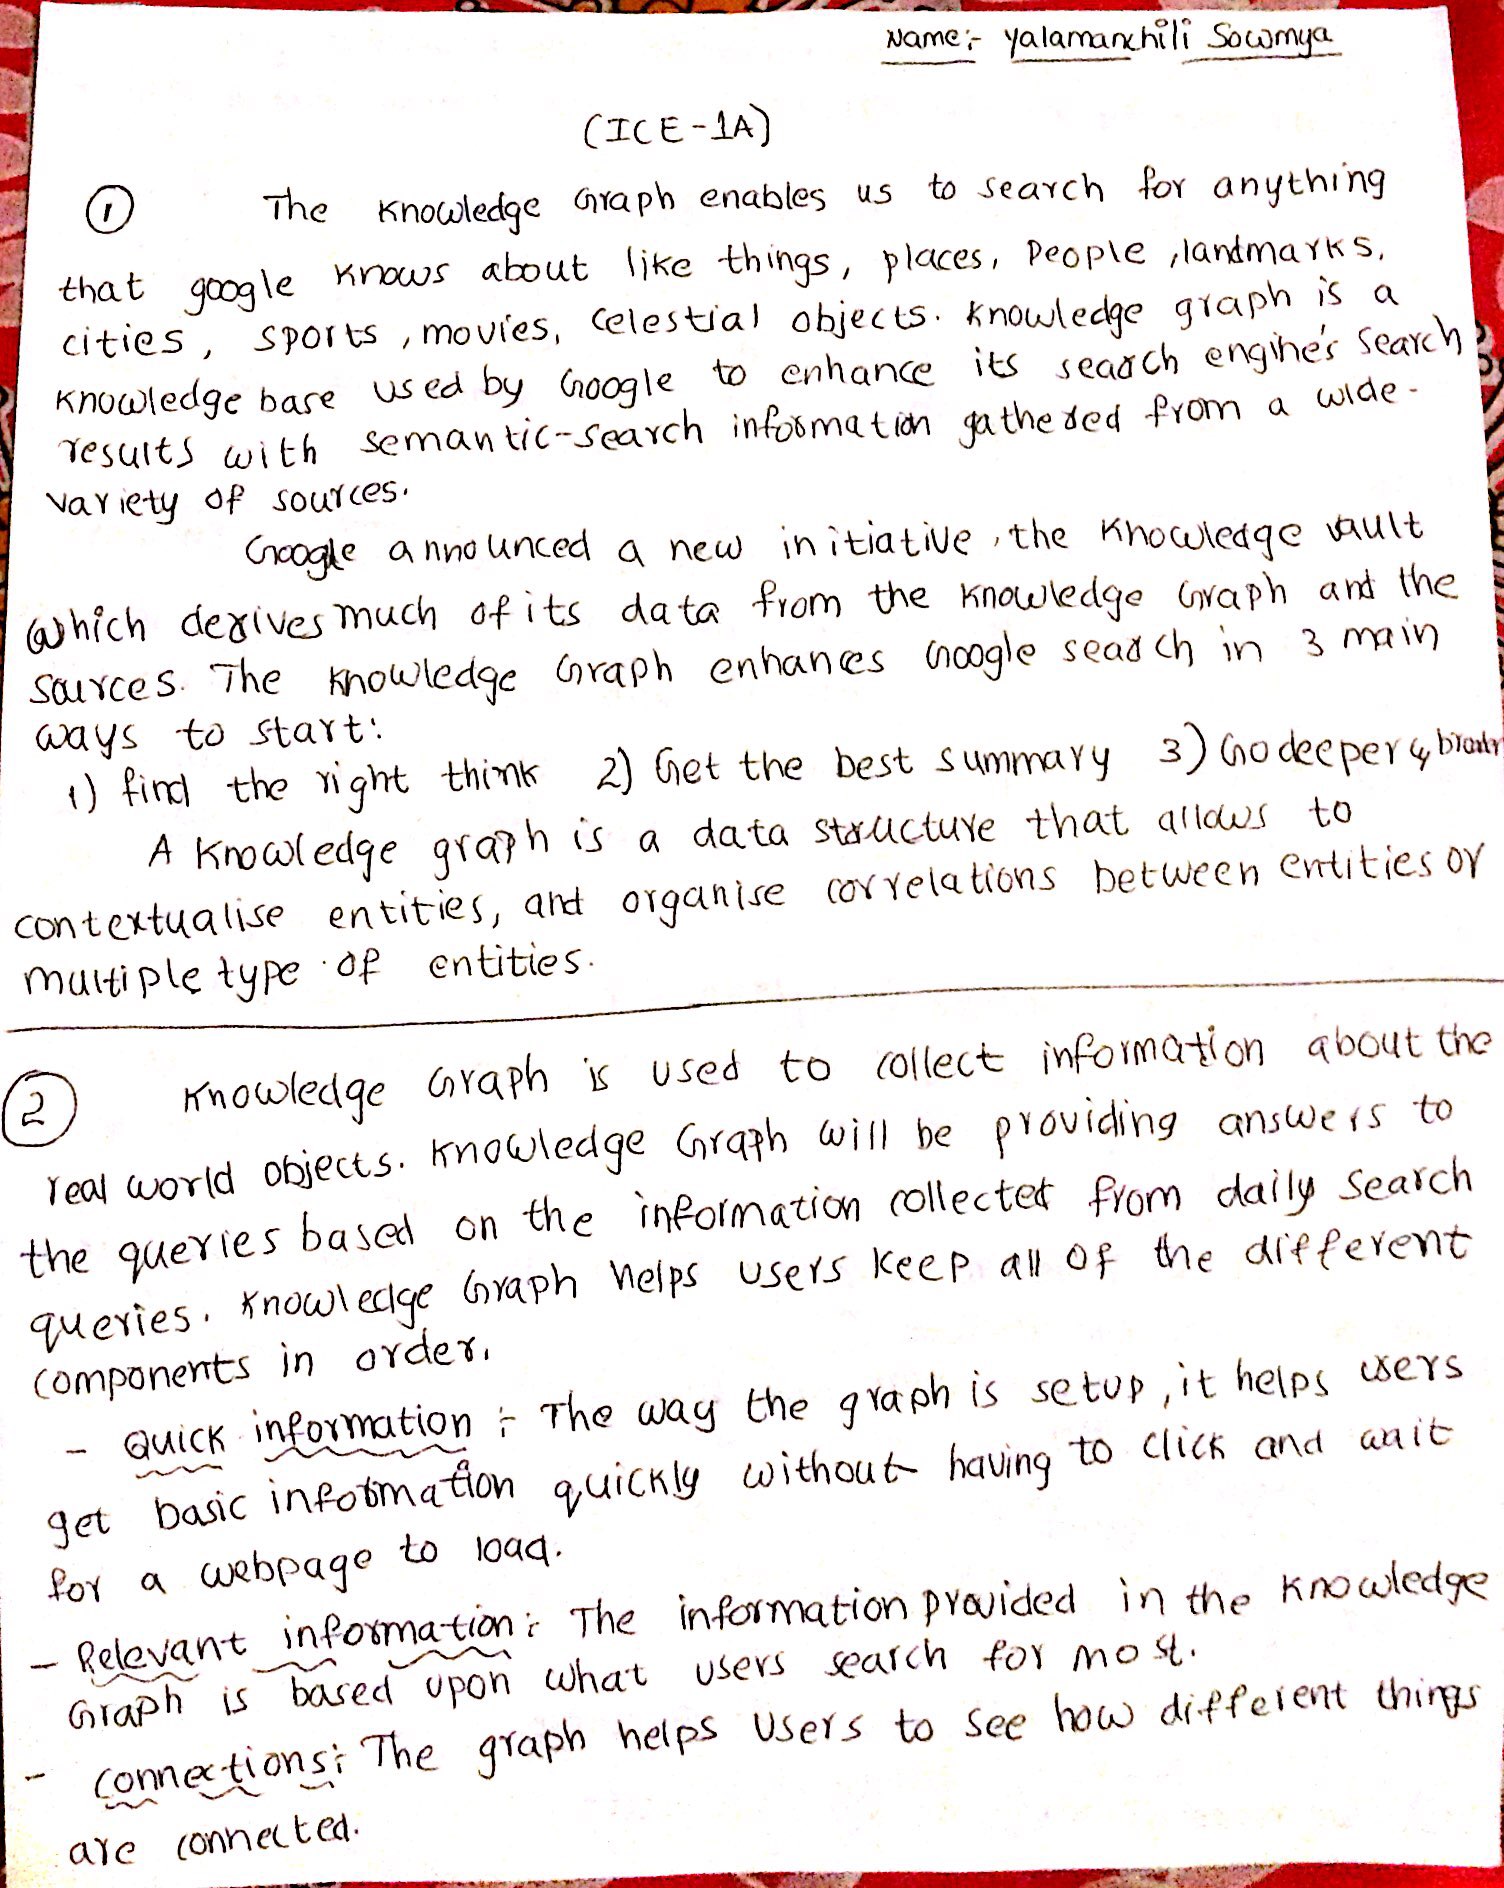 Name:- Yalamanchili Sowmya
(ICE-1A)
① The Knowledge Graph enables us to search for anything
that google knows about like things, places, People, landmarks,
cities, sports, movies, celestial objects. Knowledge graph is a
Knowledge base used by Google to enhance its search engine's search
results with semantic-search information gathered from a wide-
variety of sources.
Google announced a new initiative, the Knowledge vault
which derives much of its data from the Knowledge Graph and the
sources. The Knowledge Graph enhances Google search in 3 main
ways to start:
1) find the right think 2) Get the best summary 3) Go deeper &
A Knowledge graph is a data structure that allows to
contextualise entities, and organise correlations between entities or
multiple type of entities.
② Knowledge Graph is used to collect information about the
real world objects. Knowledge Graph will be providing answers to
the queries based on the information collected from daily search
queries. Knowledge Graph helps users keep all of the different
components in order.
- Quick information :- The way the graph is setup, it helps users
get basic information quickly without having to click and wait
for a webpage to load.
- Relevant information :- The information provided in the Knowledge
Graph is based upon what users search for most.
- Connections :- The graph helps users to see how different things
are connected.